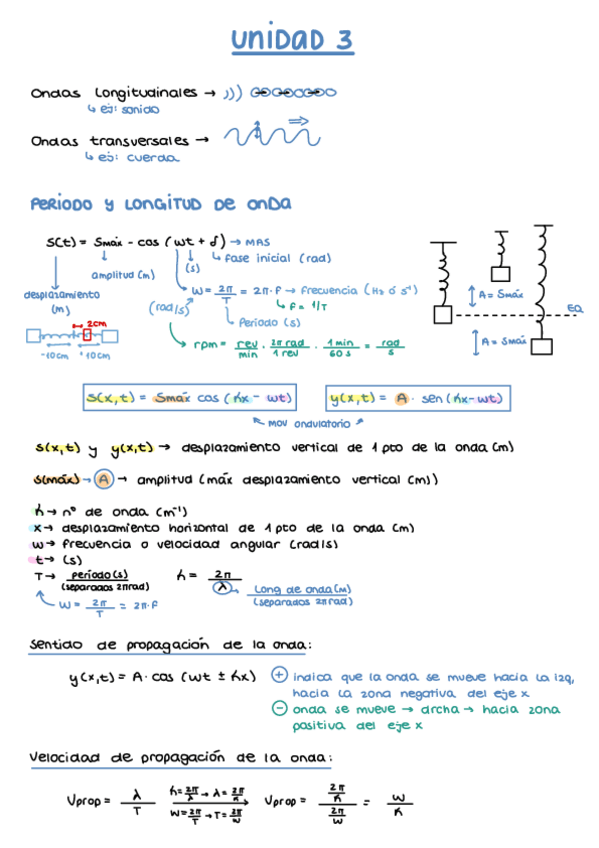 Unidad 3
Ondas longitudinales →
↳ ej: sonido
Ondas transversales →
↳ ej: cuerda
PERIODO Y LONGITUD DE ONDA
S(t) = Smáx - cos (wt + δ) → MAS
↳ fase inicial (rad)
(s)
amplitud (m)
desplazamiento
(m)
(rad/s)
w = 2π/T = 2π·f → frecuencia (Hz ó s⁻¹)
↳ f = 1/T
↳ Periodo (s)
rpm = rev/min · 2π rad/1 rev · 1 min/60 s = rad/s
2cm
-10cm +10cm
A = Smáx
EQ
A = Smáx
S(x,t) = Smáx cos (kx - wt)
y(x,t) = A · sen (kx - wt)
mov ondulatorio
s(x,t) y y(x,t) → desplazamiento vertical de 1 pto de la onda (m)
s(máx) → A → amplitud (máx desplazamiento vertical (m))
k → nº de onda (m⁻¹)
x → desplazamiento horizontal de 1 pto de la onda (m)
w → frecuencia o velocidad angular (rad/s)
t → (s)
T → período (s)/(separados 2π rad)
k = 2π/λ
Long de onda (m)/(separados 2π rad)
w = 2π/T = 2π·f
Sentido de propagación de la onda:
y(x,t) = A · cos (wt ± kx)
+ indica que la onda se mueve hacia la izq,
hacia la zona negativa del eje x
- onda se mueve → drcha → hacia zona
positiva del eje x
Velocidad de propagación de la onda:
Vprop = λ/T
k = 2π/λ → λ = 2π/k
w = 2π/T → T = 2π/w
Vprop = (2π/k)/(2π/w) = w/k